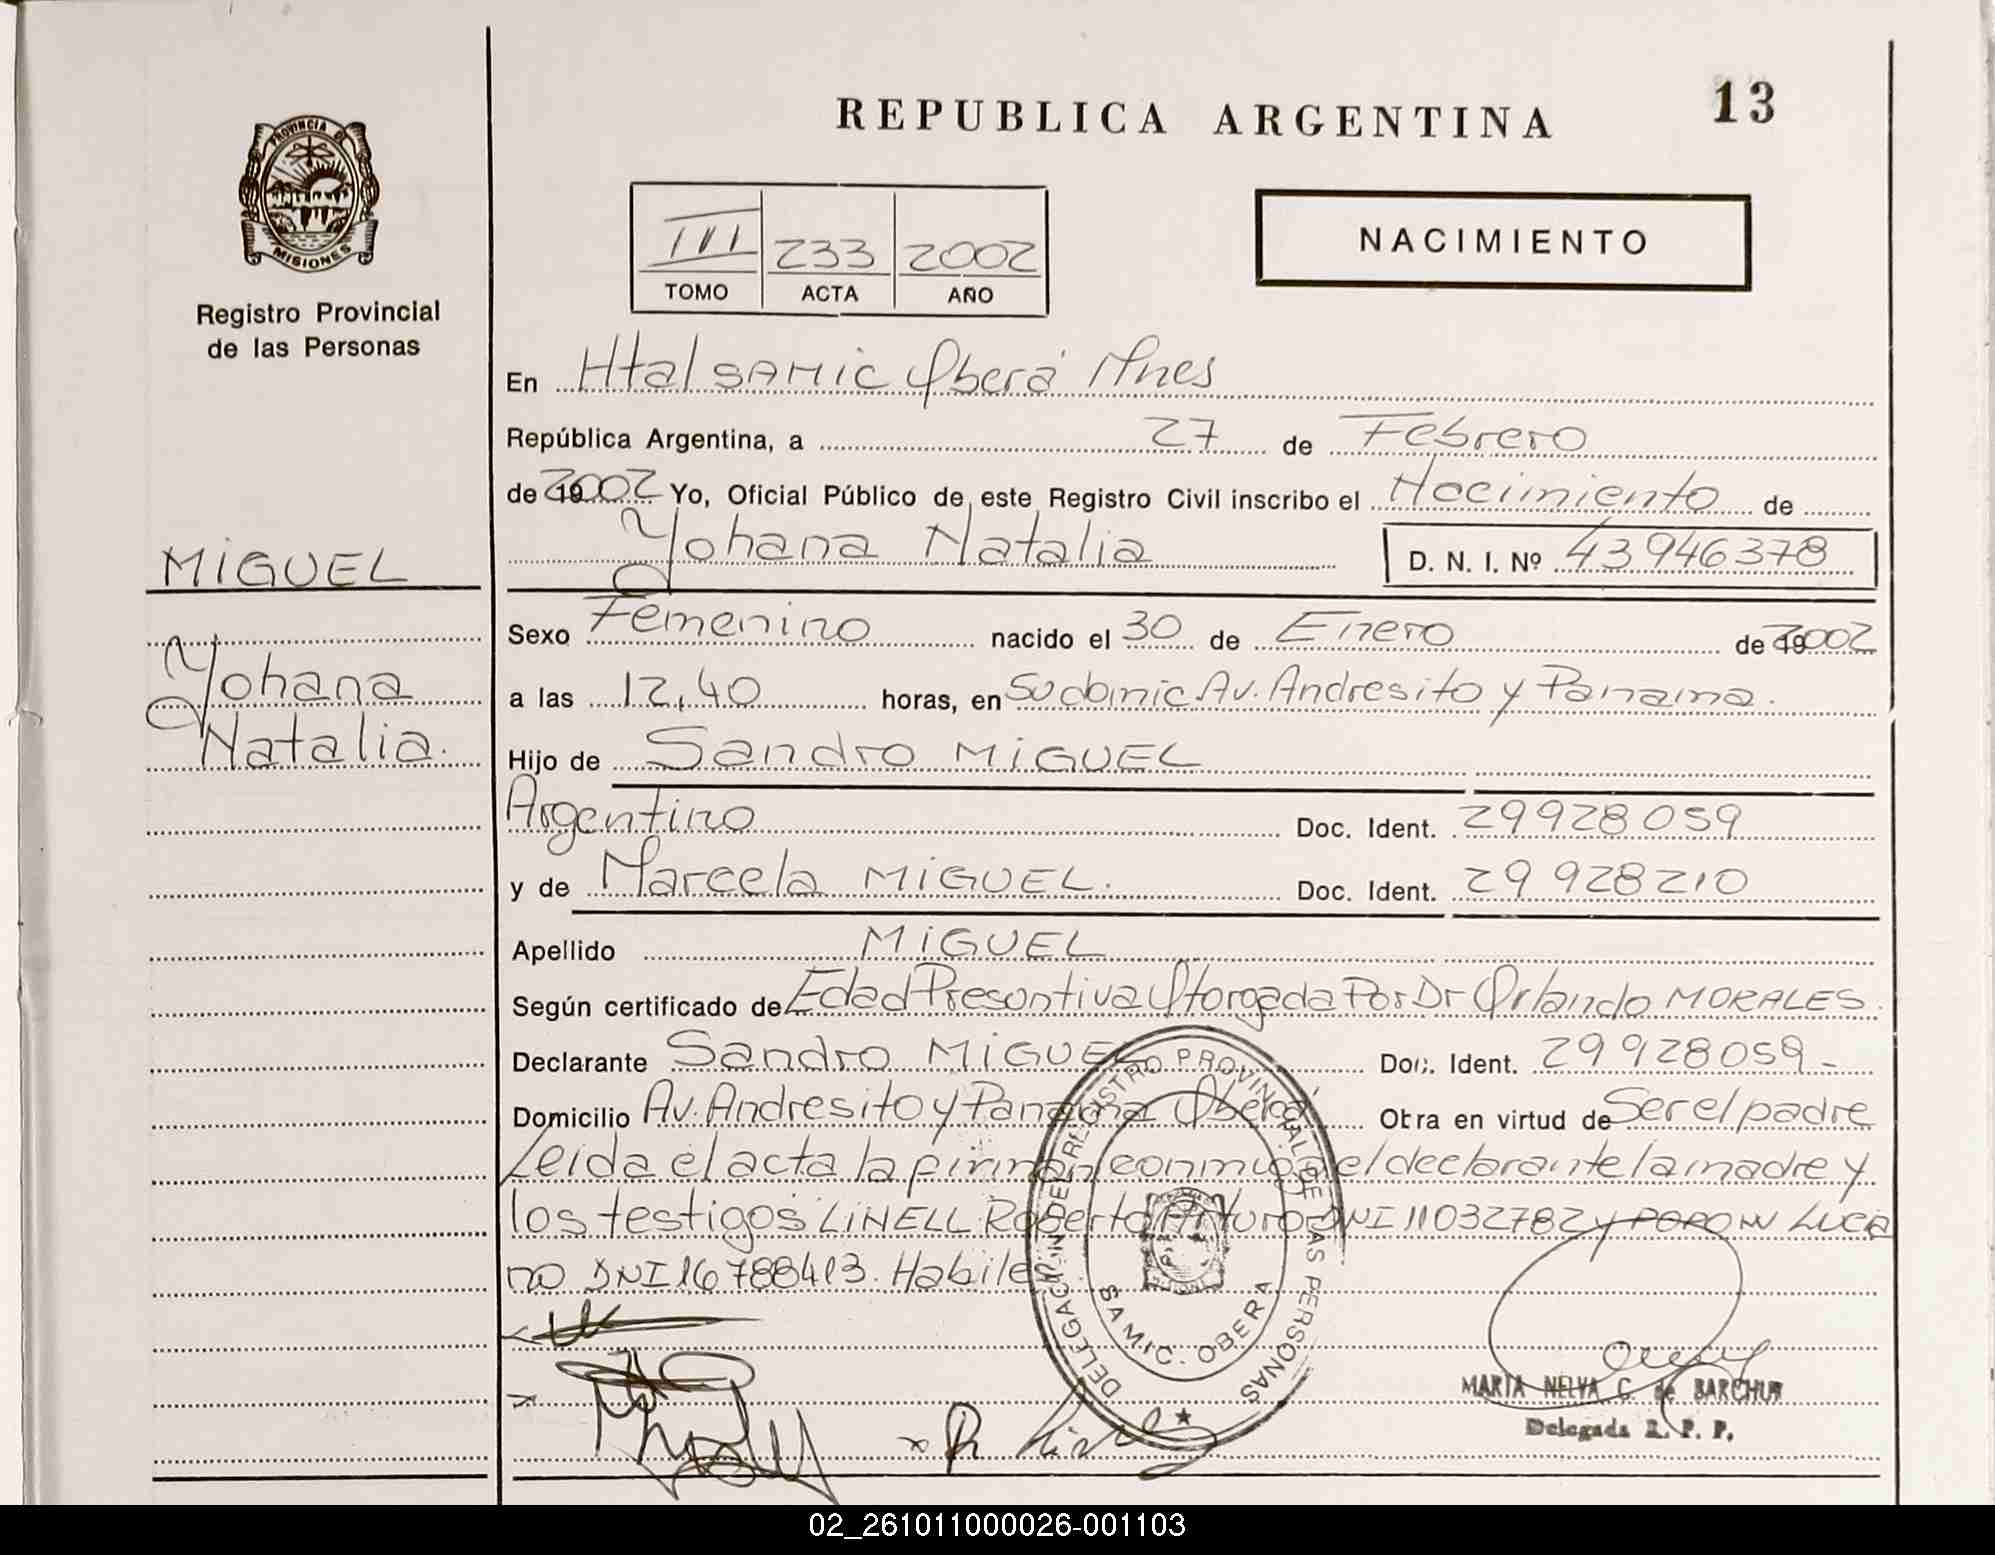 REPUBLICA ARGENTINA
13
PROVINCIA DE
MISIONES
Registro Provincial
de las Personas
III 233 2002
TOMO ACTA AÑO
NACIMIENTO
En Htal SAMIC Oberá Mnes
República Argentina, a 27 de Febrero
de 2002 Yo, Oficial Público de este Registro Civil inscribo el Nacimiento de
Yohana Natalia D. N. I. Nº 43946378
MIGUEL
Yohana
Natalia.
Sexo Femenino nacido el 30 de Enero de 2002
a las 12,40 horas, en Su domic Av. Andresito y Panama.
Hijo de Sandro MIGUEL
Argentino Doc. Ident. 29928059
y de Marcela MIGUEL. Doc. Ident. 29 928210
Apellido MIGUEL
Según certificado de Edad Presontiva Otorgada Por Dr Orlando MORALES.
Declarante Sandro MIGUEL Doc. Ident. 29928059-
Domicilio Av. Andresito y Panama Oberá Obra en virtud de Ser el padre
Leida el acta la firman conmigo el declarante la madre y
los testigos LINELL Roberto Arturo DNI 11032782 y Lucia
no DNI 16788413. Habiles
DELEGACION DEL REGISTRO PROVINCIAL DE LAS PERSONAS
SAMIC. OBERA
MARIA NELVA C. de BARCHUR
Delegada R. P. P.
02_261011000026-001103